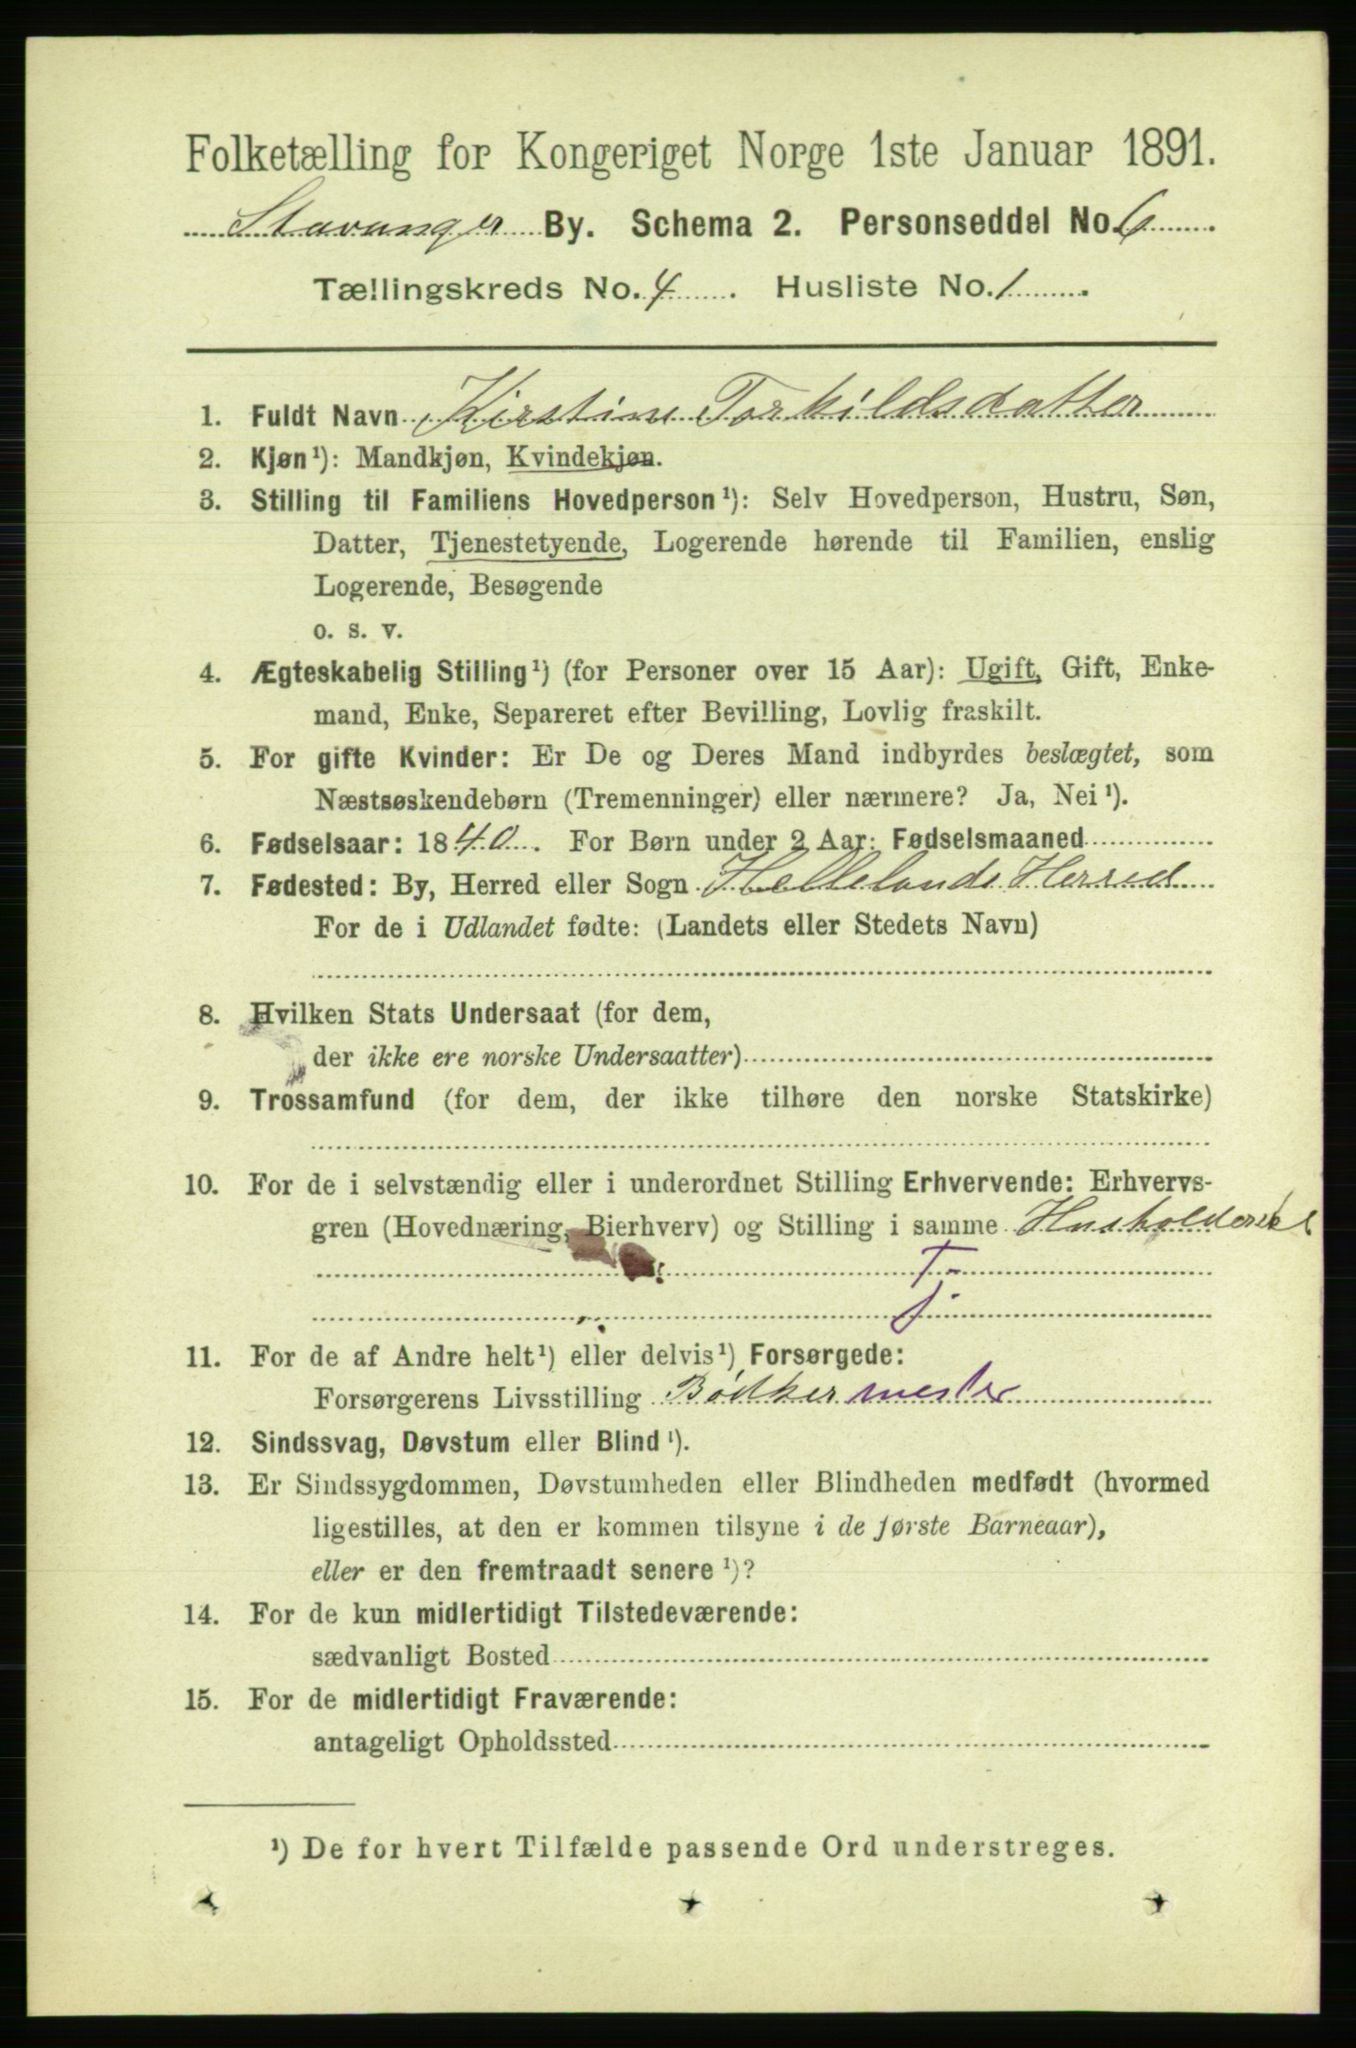 Folketælling for Kongeriget Norge 1ste Januar 1891.
Stavanger By. Schema 2. Personseddel No. 6
Tællingskreds No. 4. Husliste No. 1.
1. Fuldt Navn Kirstine Torkildsdatter
2. Kjøn ¹): Mandkjøn, Kvindekjøn.
3. Stilling til Familiens Hovedperson ¹): Selv Hovedperson, Hustru, Søn,
Datter, Tjenestetyende, Logerende hørende til Familien, enslig
Logerende, Besøgende
o. s. v.
4. Ægteskabelig Stilling ¹) (for Personer over 15 Aar): Ugift, Gift, Enke-
mand, Enke, Separeret efter Bevilling, Lovlig fraskilt.
5. For gifte Kvinder: Er De og Deres Mand indbyrdes beslægtet, som
Næstsøskendebørn (Tremenninger) eller nærmere? Ja, Nei ¹).
6. Fødselsaar: 1840. For Børn under 2 Aar: Fødselsmaaned
7. Fødested: By, Herred eller Sogn Hellelands Herred
For de i Udlandet fødte: (Landets eller Stedets Navn)
8. Hvilken Stats Undersaat (for dem,
der ikke ere norske Undersaatter)
9. Trossamfund (for dem, der ikke tilhøre den norske Statskirke)
10. For de i selvstændig eller i underordnet Stilling Erhvervende: Erhvervs-
gren (Hovednæring, Bierhverv) og Stilling i samme Husholderske
T-
j-
11. For de af Andre helt ¹) eller delvis ¹) Forsørgede:
Forsørgerens Livsstilling Bødker mester
12. Sindssvag, Døvstum eller Blind ¹).
13. Er Sindssygdommen, Døvstumheden eller Blindheden medfødt (hvormed
ligestilles, at den er kommen tilsyne i de første Barneaar),
eller er den fremtraadt senere ¹)?
14. For de kun midlertidigt Tilstedeværende:
sædvanligt Bosted
15. For de midlertidigt Fraværende:
antageligt Opholdssted
¹) De for hvert Tilfælde passende Ord understreges.